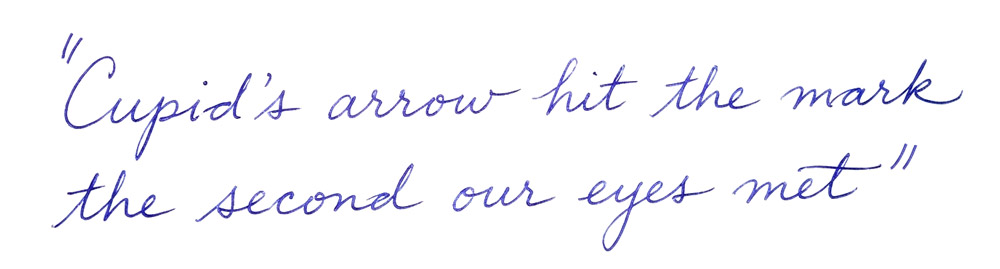 "Cupid's arrow hit the mark
the second our eyes met"